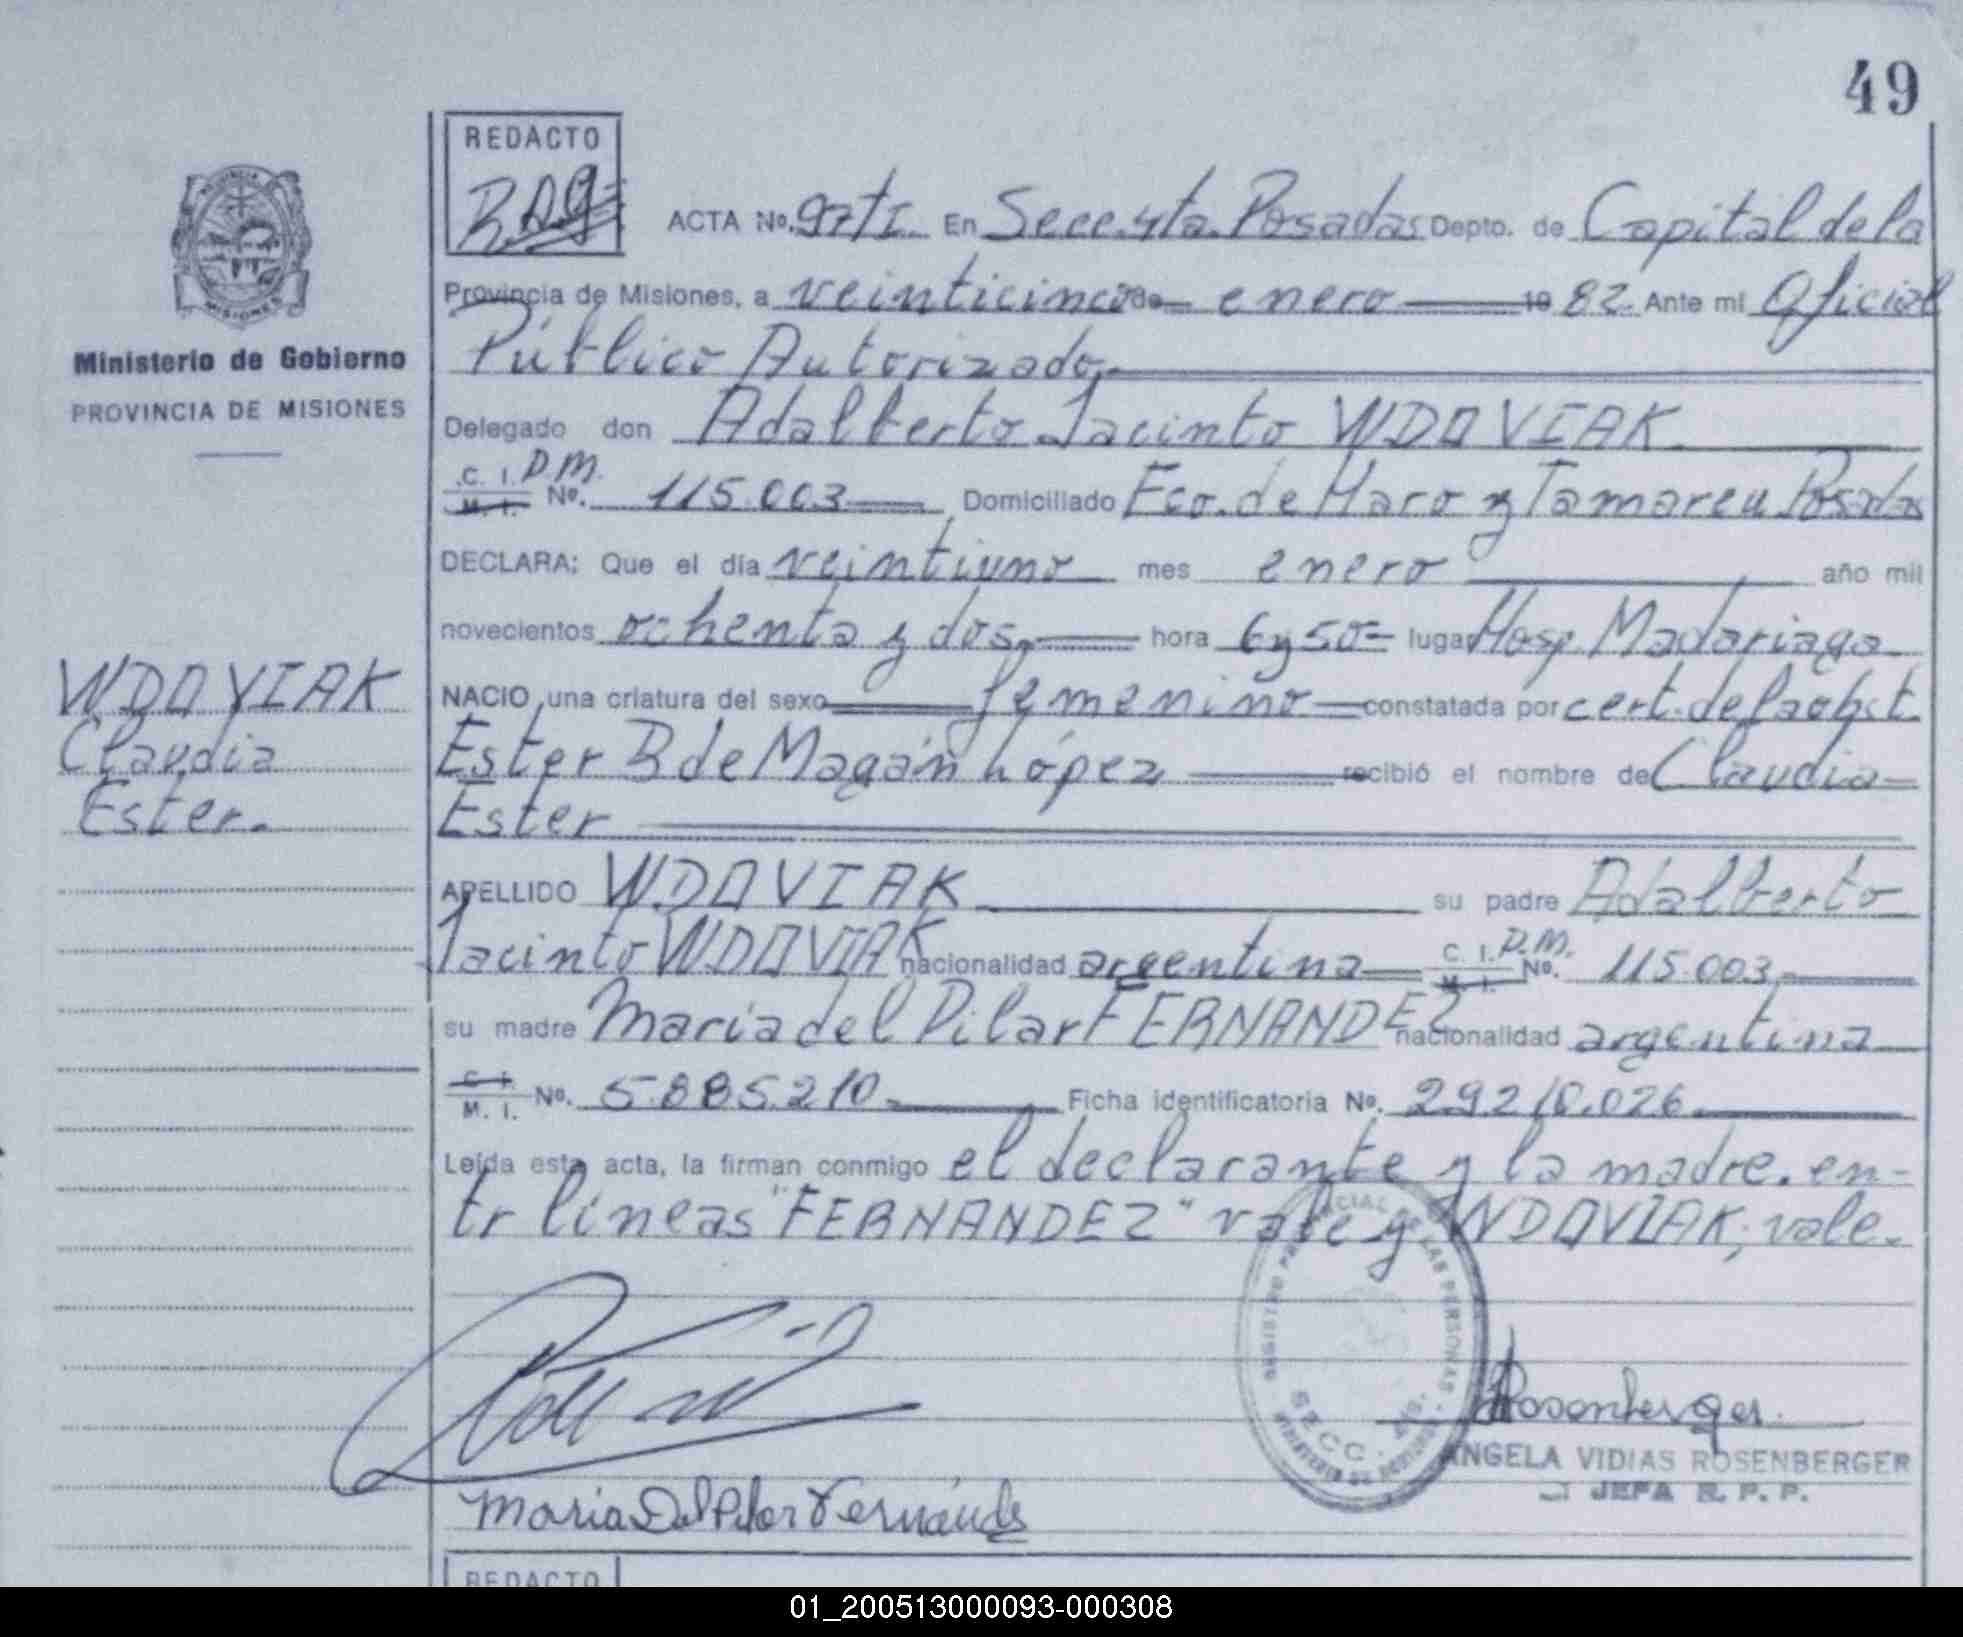 49
REDACTO
ACTA No. 97/I En Secc. 4ta. Posadas Depto. de Capital de la
Provincia de Misiones, a veinticinco de enero 1982. Ante mi Oficial
Público Autorizado.
Ministerio de Gobierno
PROVINCIA DE MISIONES
Delegado don Adalberto Jacinto WDOVIAK
C. I. D.M.
M. I. No. 115.003 Domiciliado Fco. de Haro y Tamareu Posadas
DECLARA: Que el día veintiuno mes enero año mil
novecientos ochenta y dos, hora 6 y 50 lugar Hosp. Madariaga
WDOVIAK
Claudia
Ester.
NACIO una criatura del sexo femenino constatada por cert. de la obst.
Ester B de Magán López recibió el nombre de Claudia
Ester
APELLIDO WDOVIAK su padre Adalberto
Jacinto WDOVIAK nacionalidad argentina C. I. D.M. M. I. No. 115.003
su madre María del Pilar FERNANDEZ nacionalidad argentina
C. I.
M. I. No. 5.885.210 Ficha identificatoria No.
Leída esta acta, la firman conmigo el declarante y la madre. en-
tr líneas "FERNANDEZ" vale y WDOVIAK, vale.
DE LAS PERSONAS
SECC. 4ta.
Rosenberger
ANGELA VIDIAS ROSENBERGER
JEFA R. P. P.
Maria Del Pilar Fernández
REDACTO
01_200513000093-000308